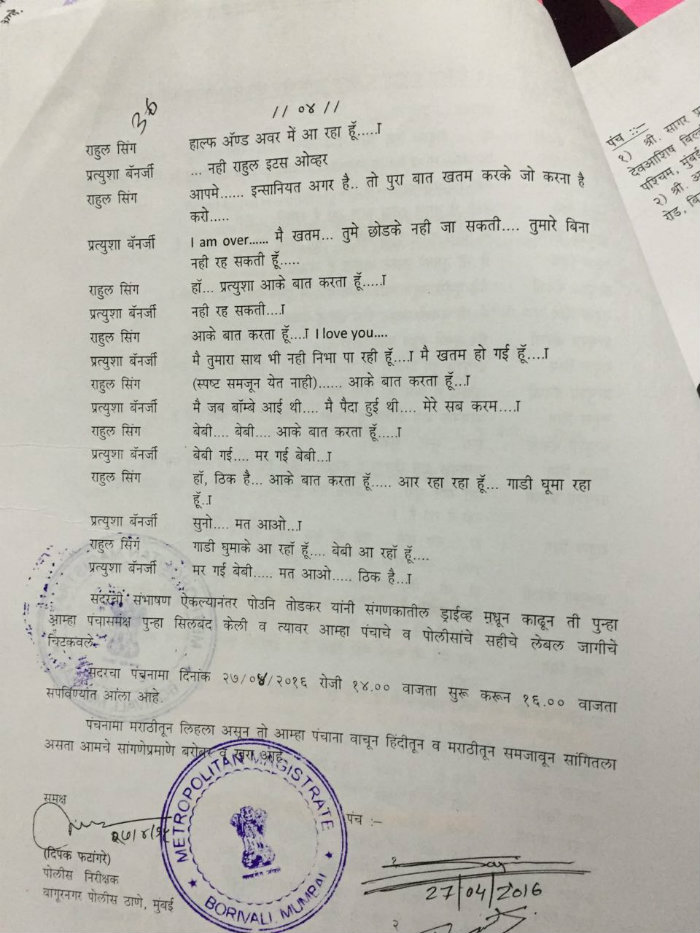 // ०४ //
राहुल सिंग हाल्फ अ‍ॅण्ड अवर में आ रहा हूँ.....ा
प्रत्युशा बॅनर्जी ... नही राहुल इटस ओव्हर
राहुल सिंग आपमे...... इन्सानियत अगर है.. तो पुरा बात खतम करके जो करना है
करो.....
प्रत्युशा बॅनर्जी I am over...... मै खतम... तुमे छोडके नही जा सकती.... तुमारे बिना
नही रह सकती हूँ.....
राहुल सिंग हॉ... प्रत्युशा आके बात करता हूँ.....ा
प्रत्युशा बॅनर्जी नही रह सकती....ा
राहुल सिंग आके बात करता हूँ....ा I love you....
प्रत्युशा बॅनर्जी मै तुमारा साथ भी नही निभा पा रही हूँ....ा मै खतम हो गई हूँ....ा
राहुल सिंग (स्पष्ट समजून येत नाही)...... आके बात करता हूँ...ा
प्रत्युशा बॅनर्जी मै जब बॉम्बे आई थी.... मै पैदा हुई थी.... मेरे सब करम....ा
राहुल सिंग बेबी.... बेबी.... आके बात करता हूँ.....ा
प्रत्युशा बॅनर्जी बेबी गई.... मर गई बेबी...ा
राहुल सिंग हॉ, ठिक है... आके बात करता हूँ..... आर रहा रहा हूँ... गाडी घूमा रहा
हूँ..ा
प्रत्युशा बॅनर्जी सुनो.... मत आओ...ा
राहुल सिंग गाडी घुमाके आ रहॉ हूँ.... बेबी आ रहॉ हूँ....
प्रत्युशा बॅनर्जी मर गई बेबी..... मत आओ..... ठिक है...ा
सदरचा संभाषण ऐकल्यानंतर पोउनि तोडकर यांनी संगणकातील ड्राईव्ह मधून काढून ती पुन्हा
आम्हा पंचासमक्ष पुन्हा सिलबंद केली व त्यावर आम्हा पंचाचे व पोलीसांचे सहीचे लेबल जागीचे
चिटकवले.
सदरचा पंचनामा दिनांक २७/०४/२०१६ रोजी १४.०० वाजता सुरू करून १६.०० वाजता
संपविण्यात आला आहे.
पंचनामा मराठीतून लिहला असून तो आम्हा पंचाना वाचून हिंदीतून व मराठीतून समजावून सांगितला
असता आमचे सांगणेप्रमाणे बरोबर व खरा आहे.
समक्ष
पंच :–
२७/४/१६
(दिपक फटांगरे)
पोलीस निरीक्षक
बांगूरनगर पोलीस ठाणे, मुंबई
METROPOLITAN MAGISTRATE
BORIVALI, MUMBAI
१
27/04/2016
२
पंच :–
१) श्री. सागर
देवआशिष
पश्चिम, मुंबई
२) श्री.
रोड,